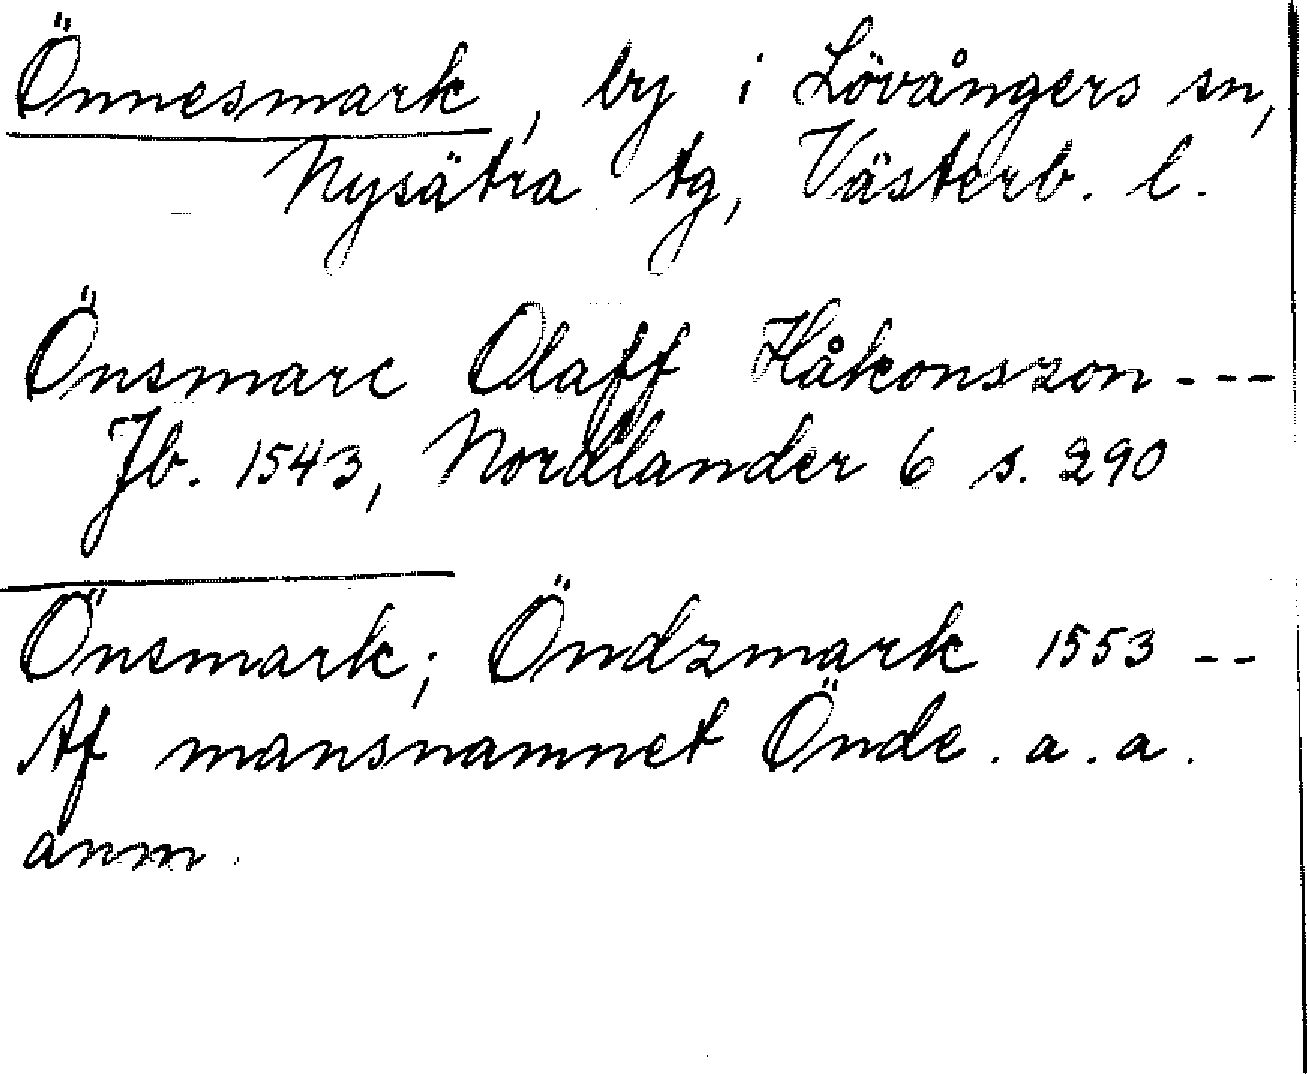 Önnesmark, by i Lövångers sn,
Nysätra tg, Västerb. l.
Önsmarc Olaff Håkonszon ---
Jb. 1543, Nordlander 6 s. 290
Önsmark; Öndzmark 1553 --
Af mansnamnet Önde. a. a.
anm.